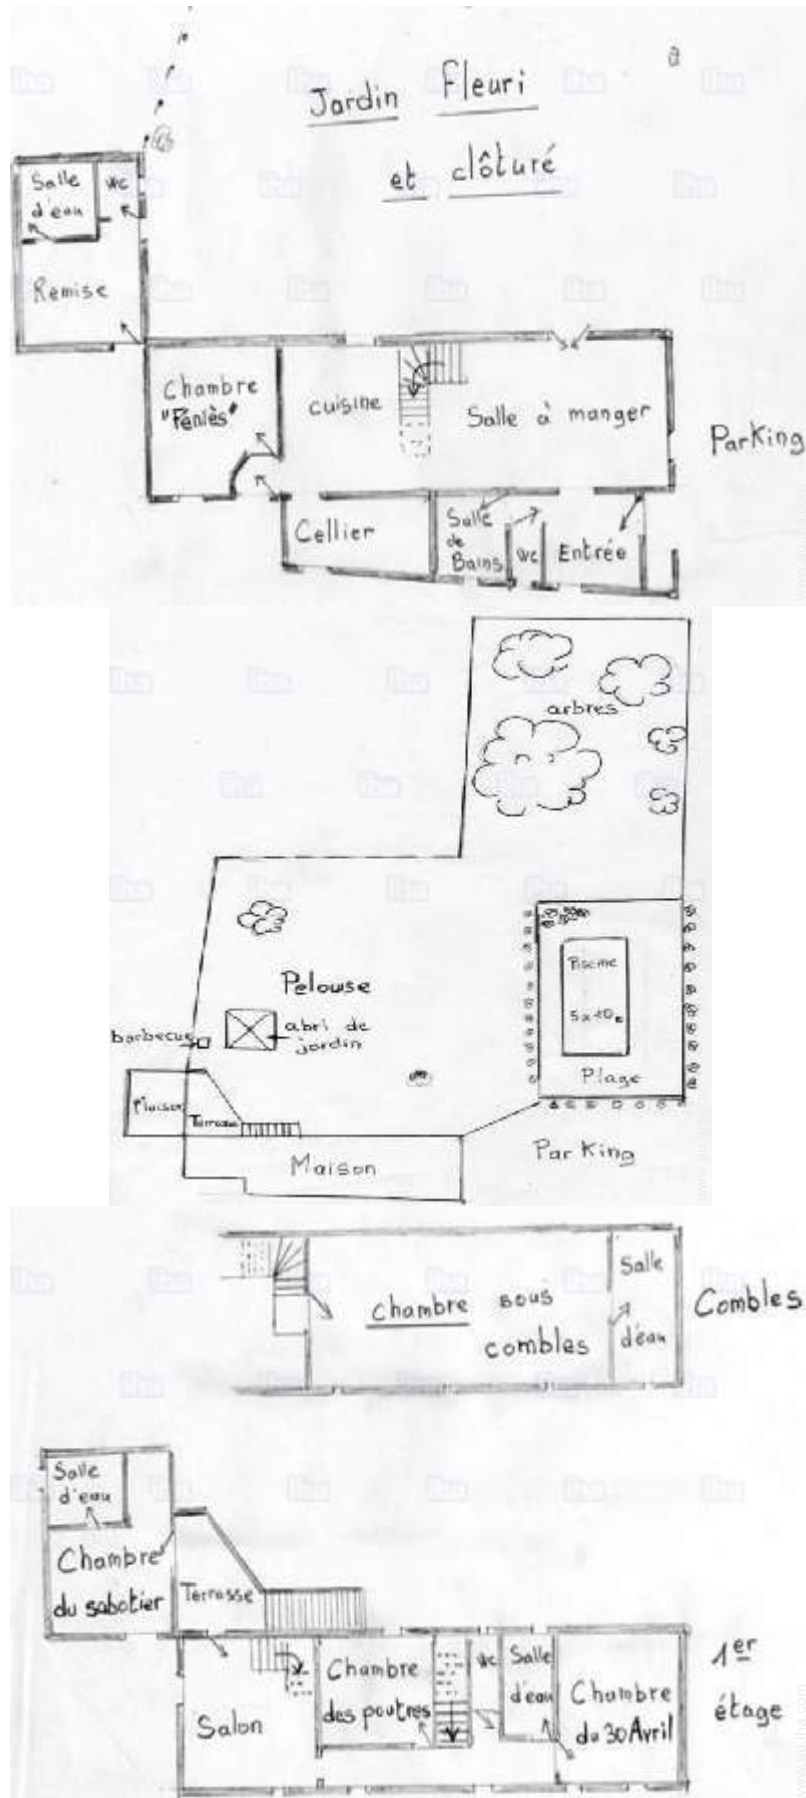 Jardin Fleuri
et clôturé
Salle
d'eau
WC
Remise
Chambre
"Féniès"
cuisine
Salle à manger
Parking
Cellier
Salle
de
Bains
WC
Entrée
arbres
Pelouse
Piscine
5x10m
abri de
jardin
barbecue
Plage
Maison
Terrasse
Maison
Parking
Chambre sous
combles
Salle
d'eau
Combles
Salle
d'eau
Chambre
du sabotier
Terrasse
Salon
Chambre
des poutres
WC
Salle
d'eau
Chambre
du 30 Avril
1er
étage